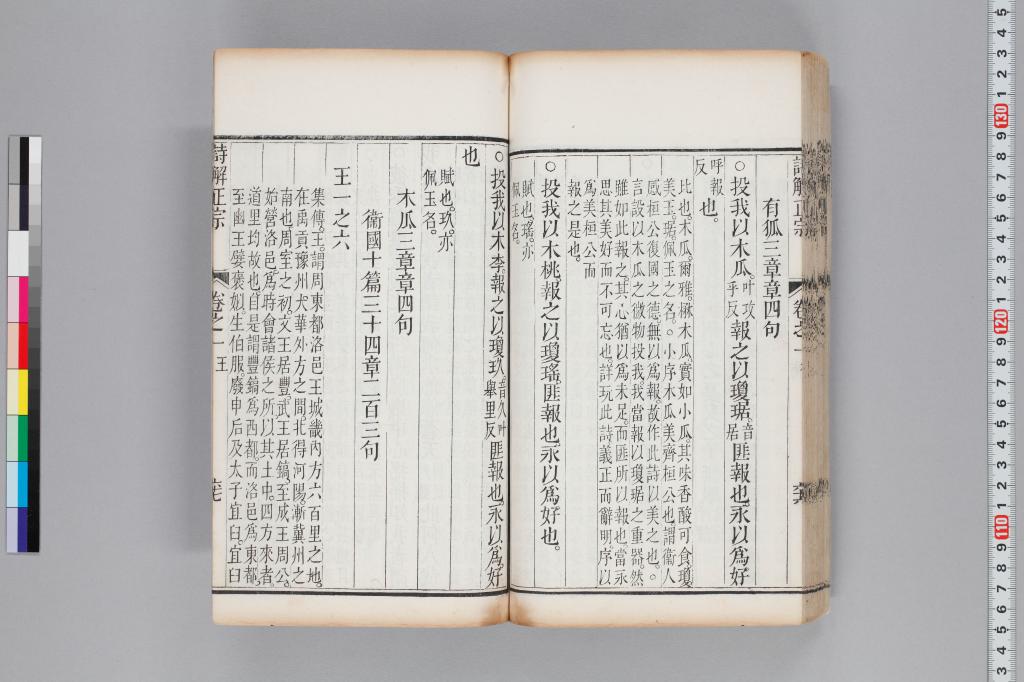 有狐三章章四句
○投我以木瓜。叶攻乎反報之以瓊琚。音居匪報也。永以爲好。
呼報反也。
比也。木瓜。爾雅。楙木瓜。實如小瓜。其味香酸可食。瓊
美玉。琚佩玉之名。○小序木瓜美齊桓公也。謂衞人
感桓公復國之德。無以爲報。故作此詩以美之也。○
言設以木瓜之微物投我。我當報以瓊琚之重器。然
雖如此報之。其心猶以爲未足。而匪所以報也。當永
思其美好而不可忘也。詳玩此詩。義正而辭明。序以
爲美桓公而
報之是也。
○投我以木桃。報之以瓊瑤。匪報也。永以爲好也。
賦也。瑤亦
佩玉名。
○投我以木李。報之以瓊玖。音久叶舉里反匪報也。永以爲好
也
賦也。玖。亦
佩玉名。
木瓜三章章四句
衞國十篇三十四章二百三句
王一之六
集傳。王。謂周東都洛邑王城畿內方六百里之地。
在禹貢豫州犬華外方之間。北得河陽。漸冀州之
南也。周室之初。文王居豐。武王居鎬。至成王周公。
始營洛邑。爲時會諸侯之所。以其土中。四方來者
道里均故也。自是謂豐鎬爲西都。而洛邑爲東都。
至幽王嬖褒姒。生伯服。廢申后及太子宜臼。宜臼
詩解正宗 卷之一 王
詩解正宗 卷之一